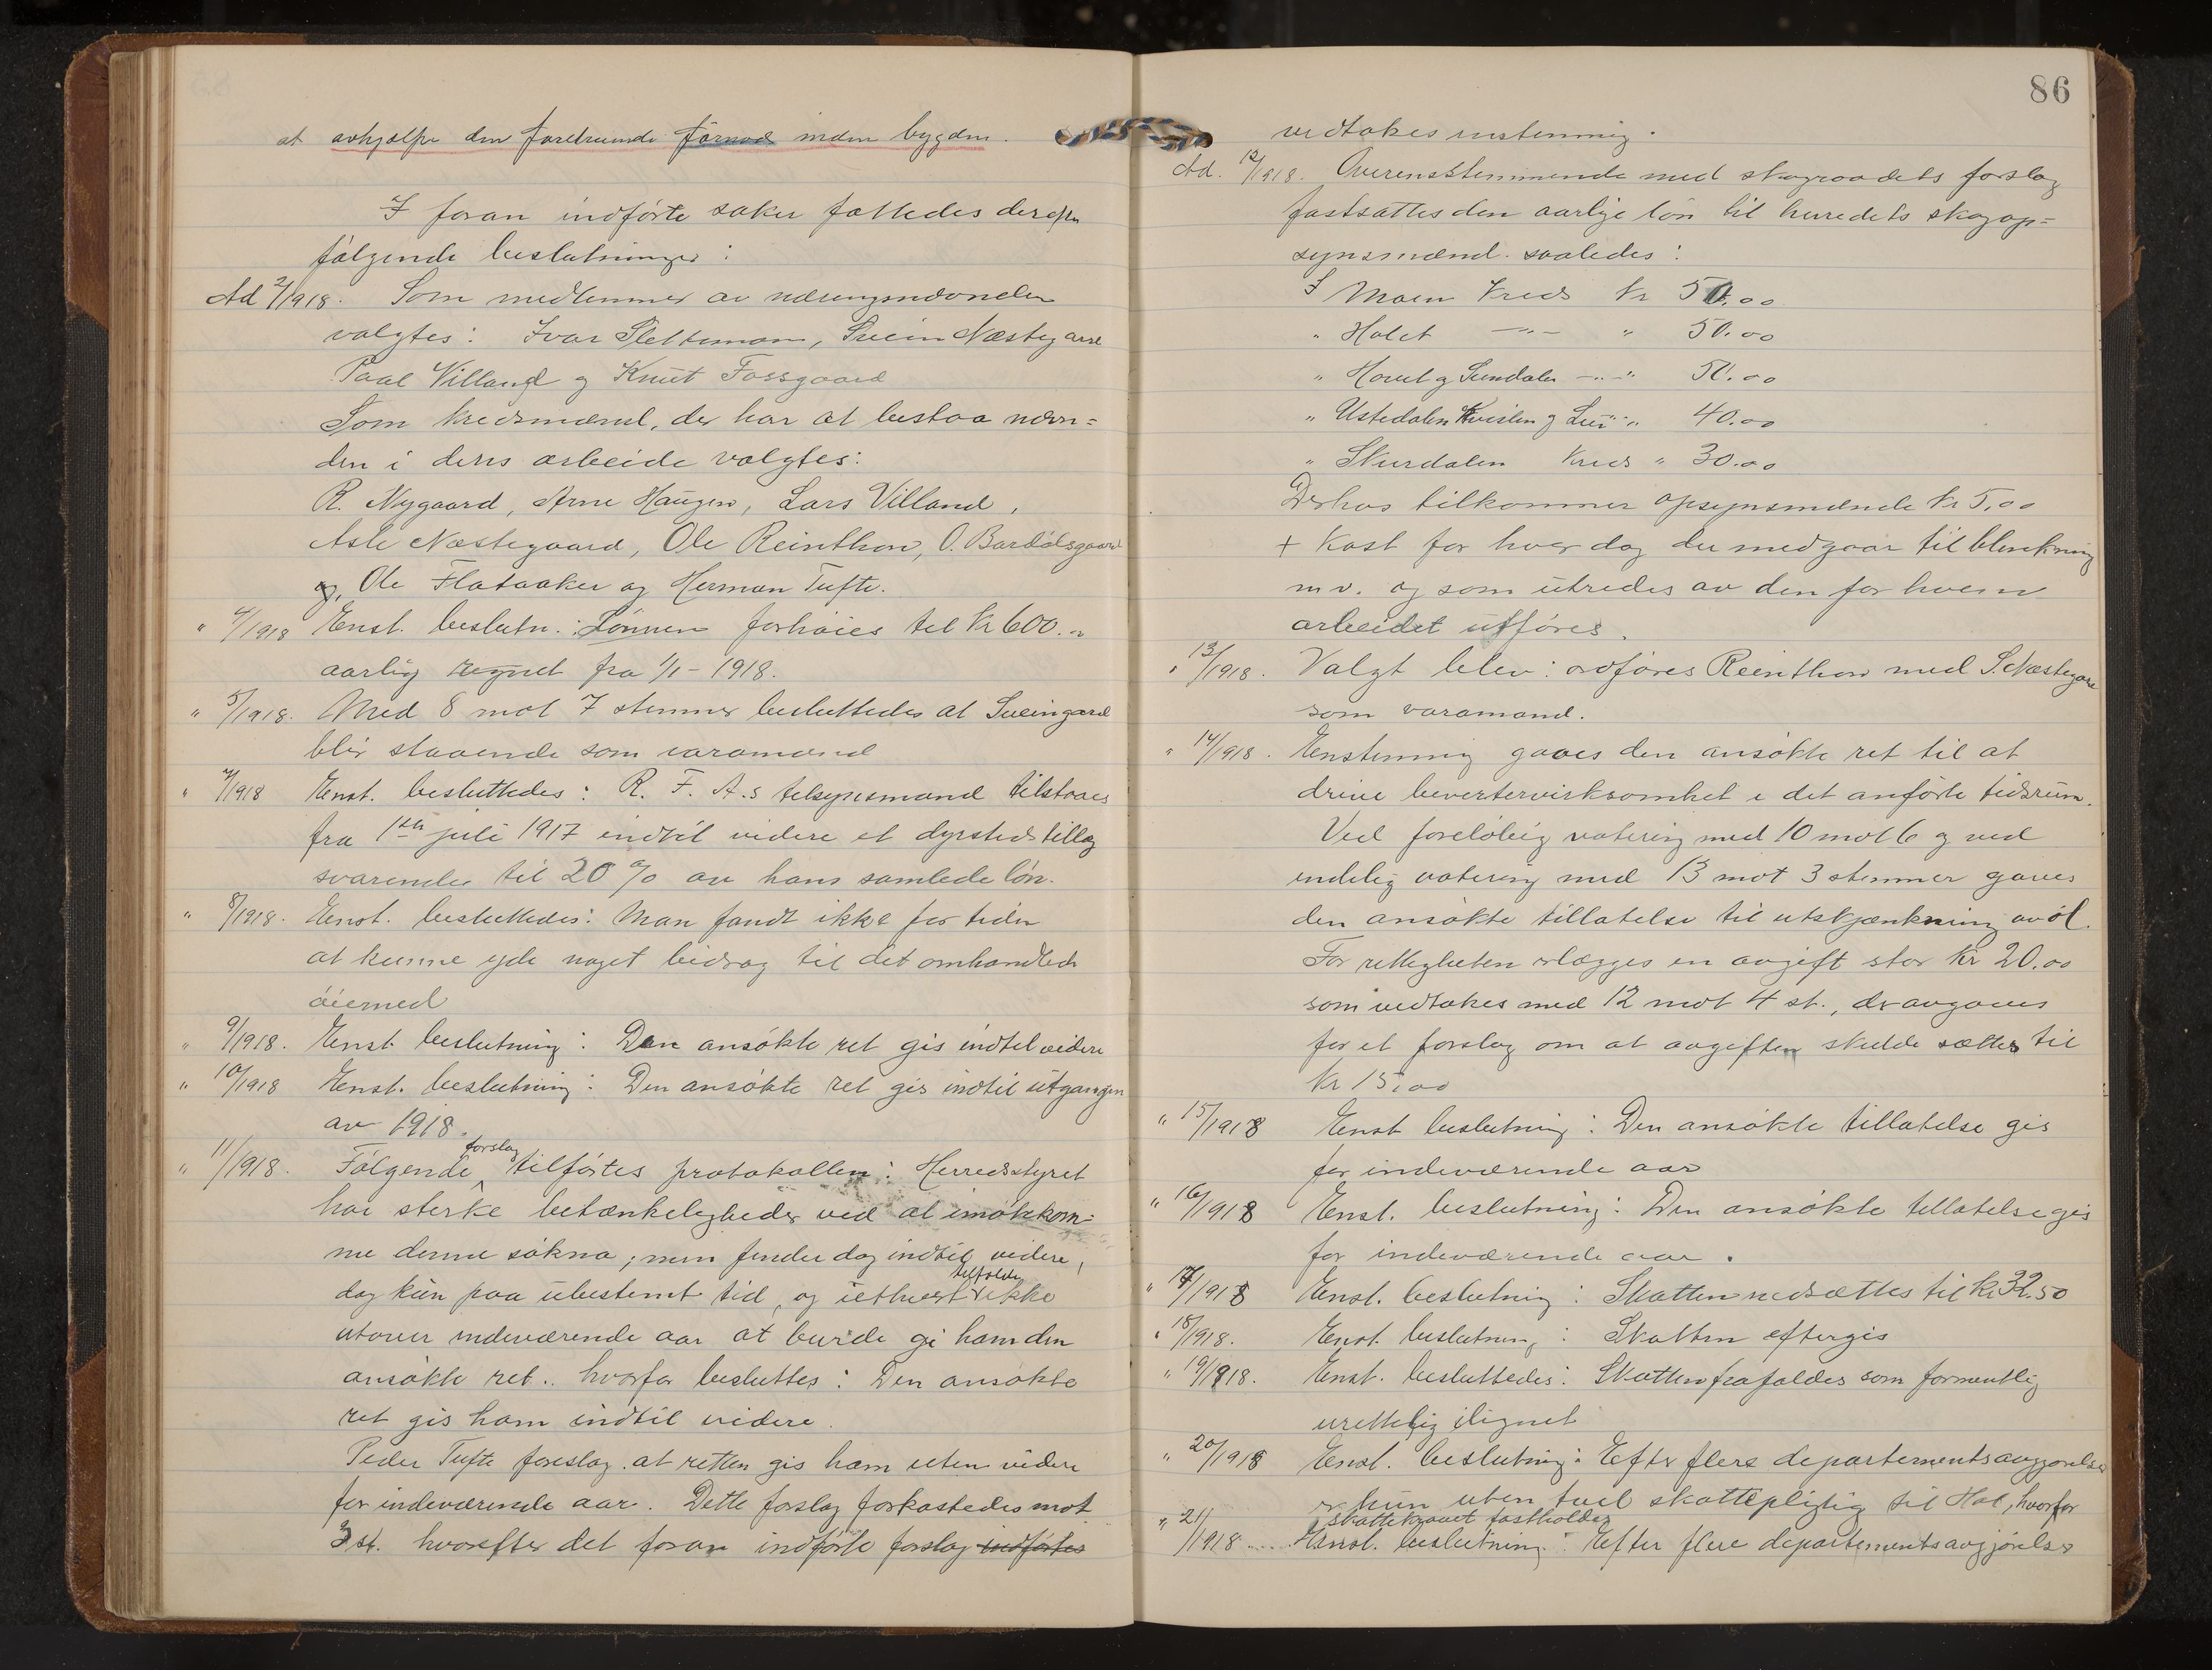 at avhjælpe den forekommende förnöd inden bygden.
I foran indførte saker fattedes derefter
følgende beslutninger:
Ad 2/1918. Som medlemmer av næringsnævnden
valgtes: Ivar Slettemoen, Svein Næstegard
Paal Villand og Knut Fossgaard
Som kredsmænd, der har at bestaa nævn=
den i deres arbeide valgtes:
R. Nygaard, Arne Haugen, Lars Villand,
Asle Næstegaard, Ole Reinthon, O. Bardølsgaard
Ole Flataaker og Herman Tufte.
" 4/1918 Enst. beslutn.: Lønnen forhøies til kr 600.-
aarlig regnet fra 1/1-1918.
" 5/1918. Med 8 mot 7 stemmer besluttedes at Sveingard
blir staaende som varamand
" 7/1918 Enst. besluttedes: R. F. A.s tilsynsmand tilstaaes
fra 1ste juli 1917 indtil videre et dyrtidstillæg
svarende til 20 % av hans samlede løn.
" 8/1918. Enst. besluttedes: Man fandt ikke for tiden
at kunne yde noget bidrag til det omhandlede
øiemed
" 9/1918. Enst. beslutning: Den ansøkte ret gis indtil videre
" 10/1918 Enst. beslutning: Den ansøkte ret gis indtil utgangen
av 1918.
" 11/1918. Følgende forslag tilførtes protokollen: Herredsstyret
har sterke betænkeligheder ved at imøkkom-
me denne søkna; men finder dog indtil videre,
dog kun paa ubestemt tid, og iethvert tilfælde ikke
utover indeværende aar at burde gi ham den
ansøkte ret.. hvorfor besluttes: Den ansøkte
ret gis ham indtil videre.
Peder Tufte foreslog at retten gis ham uten videre
for indeværende aar. Dette forslag forkastedes mot
3 st. hvorefter det foran indførte forslag indførtes
86
vedtakes enstemmig.
Ad. 12/1918. Overensstemmende med skograadets forslag
fastsattes den aarlige løn til herredets skogop=
synsmænd saaledes:
I Moen Kreds kr 50.00
" Holet -"- " 50.00
" Hovet og Sundalen -"- " 50.00
" Ustedalen Kvislen og Lii " " 40.00
" Skurdalen Kreds " 30.00
Derhos tilkommer opsynsmændene kr 5,00
+ kost for hver dag der medgaar til blinkning
m.v. og som utredes av den for hvem
arbeidet utføres.
" 13/1918. Valgt blev: ordfører Reinthon med S. Næstegard
som varamand.
" 14/1918. Enstemmig gaves den ansøkte ret til at
drive bevertervirksomhet i det anførte tidsrum.
Ved foreløbig votering med 10 mot 6 og ved
endelig votering med 13 mot 3 stemmer gaves
den ansøkte tillatelse til utskjænkning av øl.
For rettigheten erlægges en avgift stor kr 20.00
som vedtakes med 12 mot 4 st., der avgaves
for et forslag om at avgiften skulde sættes til
kr 15,00
" 15/1918 Enst. beslutning: Den ansøkte tillatelse gis
for indeværende aar
" 16/1918 Enst. beslutning: Den ansøkte tillatelse gis
for indeværende aar.
" 17/1918 Enst. beslutning: Skatten nedsættes til kr 32.50
" 18/1918. Enst. beslutning: Skatten eftergis
" 19/1918. Enst. besluttedes: Skatten frafaldes som formentlig
urettelig ilignet
" 20/1918 Enst. beslutning: Efter flere departementsavgjørelser
er hun uten tvil skattepligtig til Hol, hvorfor
skattekravet fastholdes
" 21/1918..... Enst. beslutning: Efter flere departementsavgjørelser